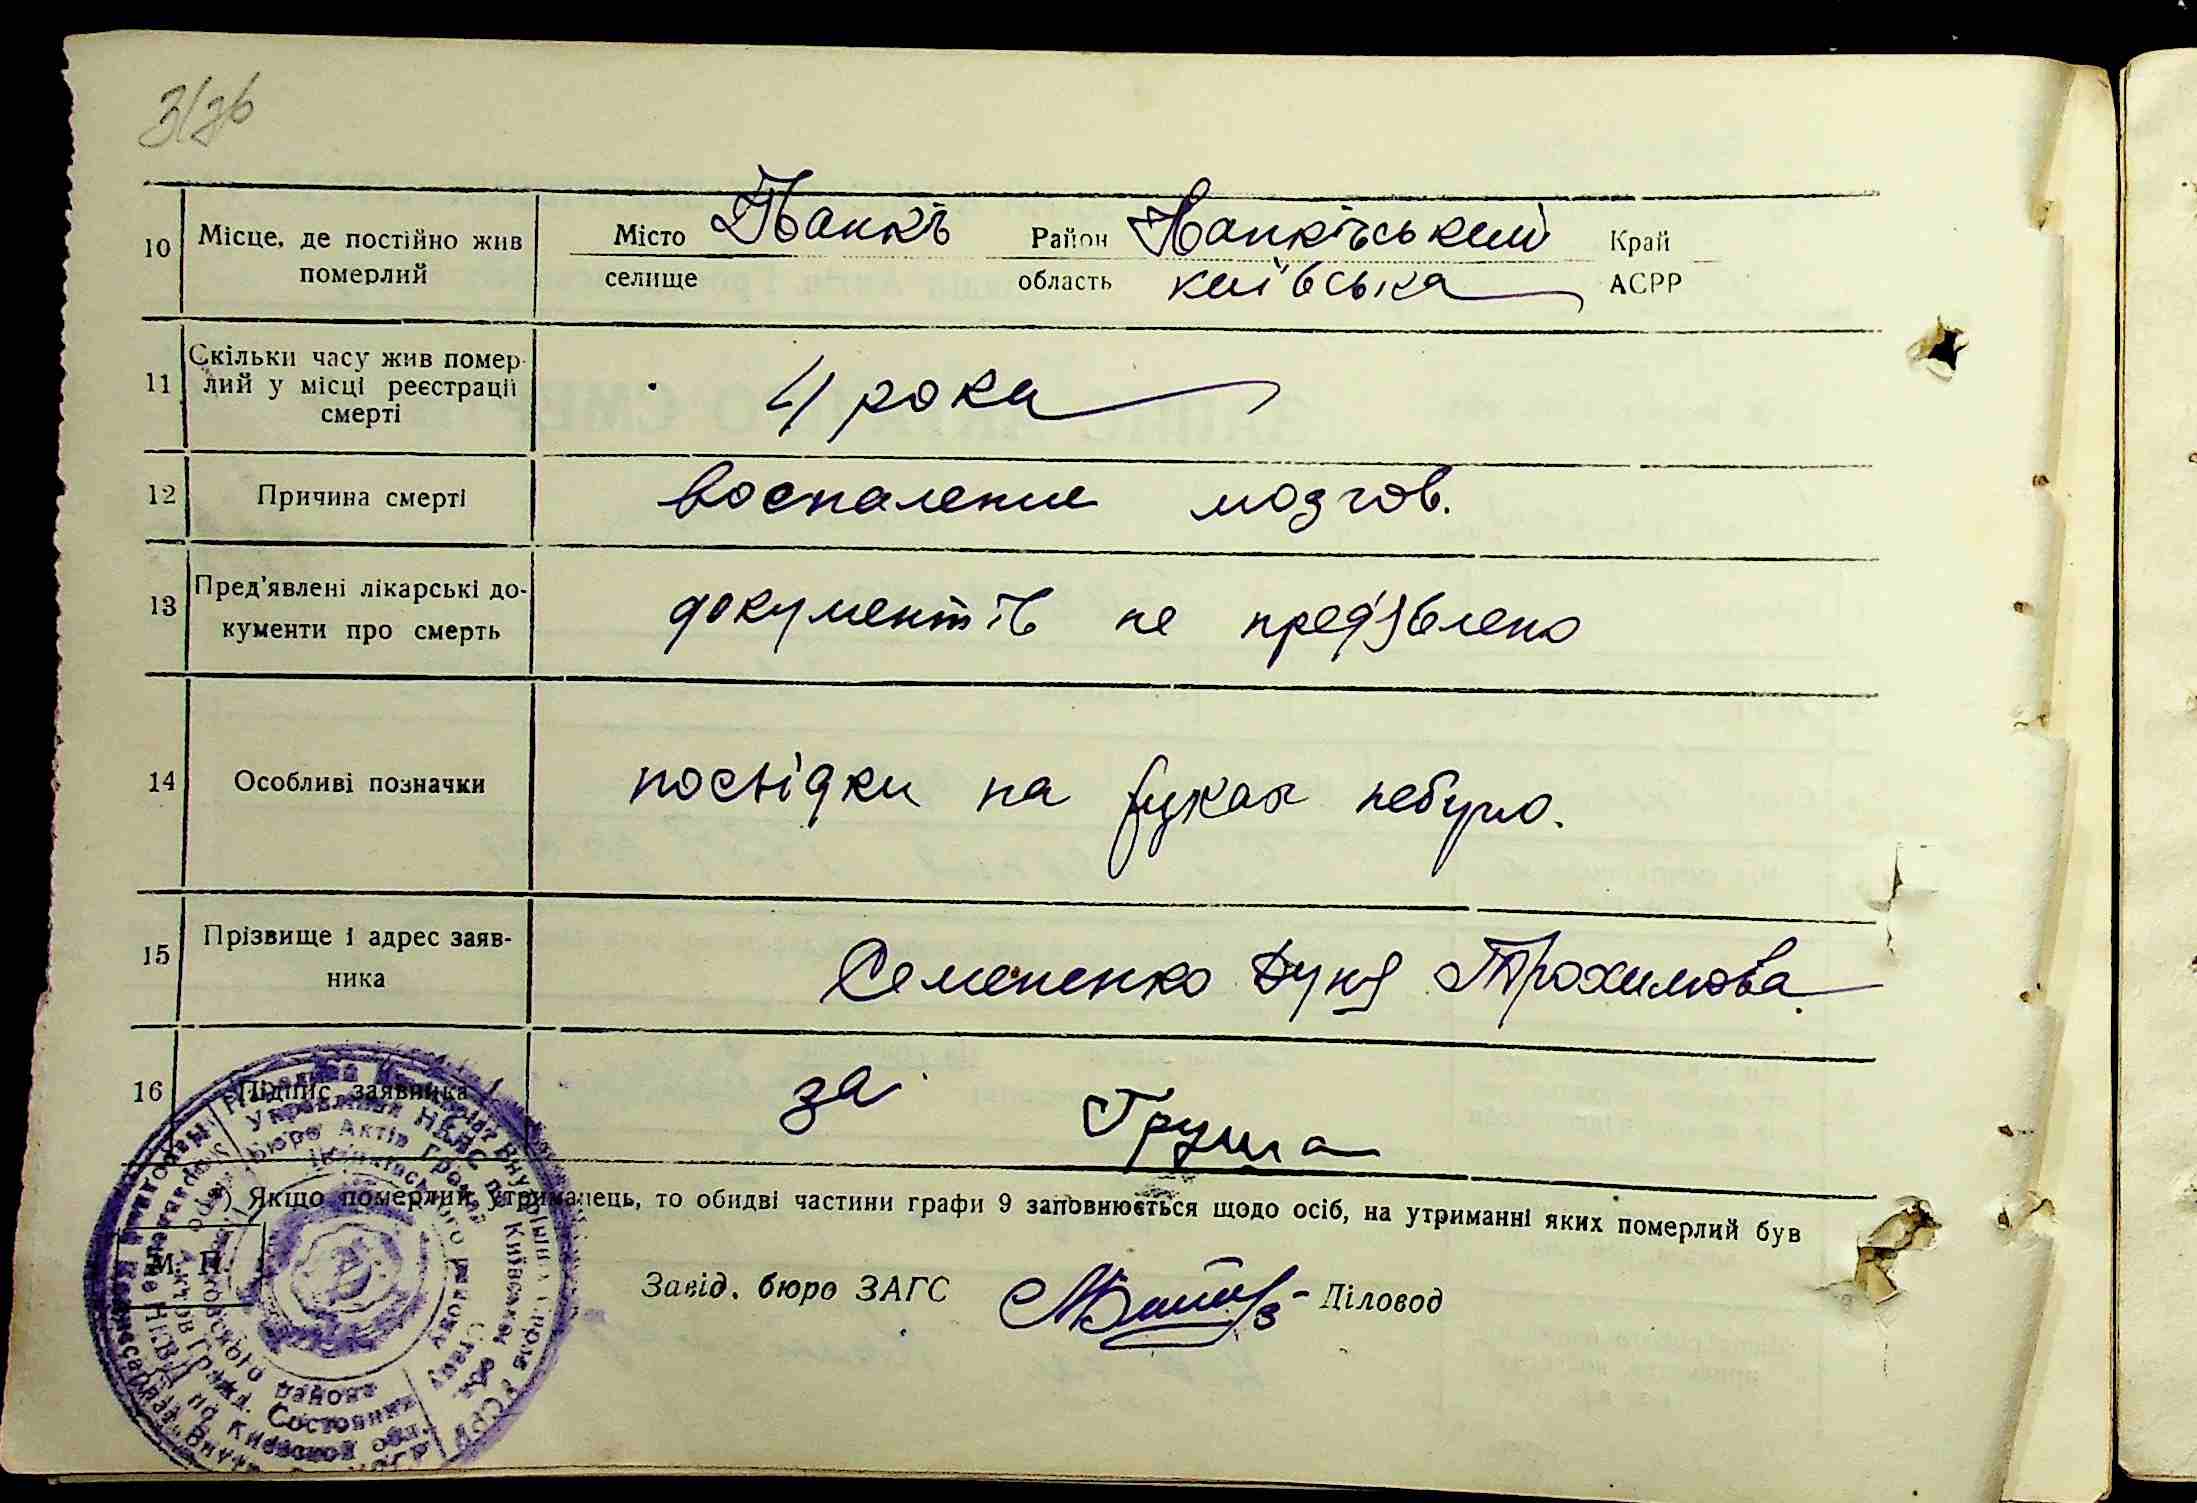 10 Місце, де постійно жив померлий
Місто Іванків Район Іванківський Край
селище область київська АСРР
11 Скільки часу жив помер-
лий у місці реєстрації
смерті
4 роки
12 Причина смерті воспаление мозгов.
13 Пред'явлені лікарські до-
кументи про смерть
документів не пред'явлено
14 Особливі позначки
посвідки на руках небуло.
15 Прізвище і адрес заяв-
ника
Семененко Дуня Трохимова
16 Підпис заявника за Груша
*) Якщо померлий утриманець, то обидві частини графи 9 заповнюється щодо осіб, на утриманні яких померлий був
М. П.
Завід. бюро ЗАГС Діловод